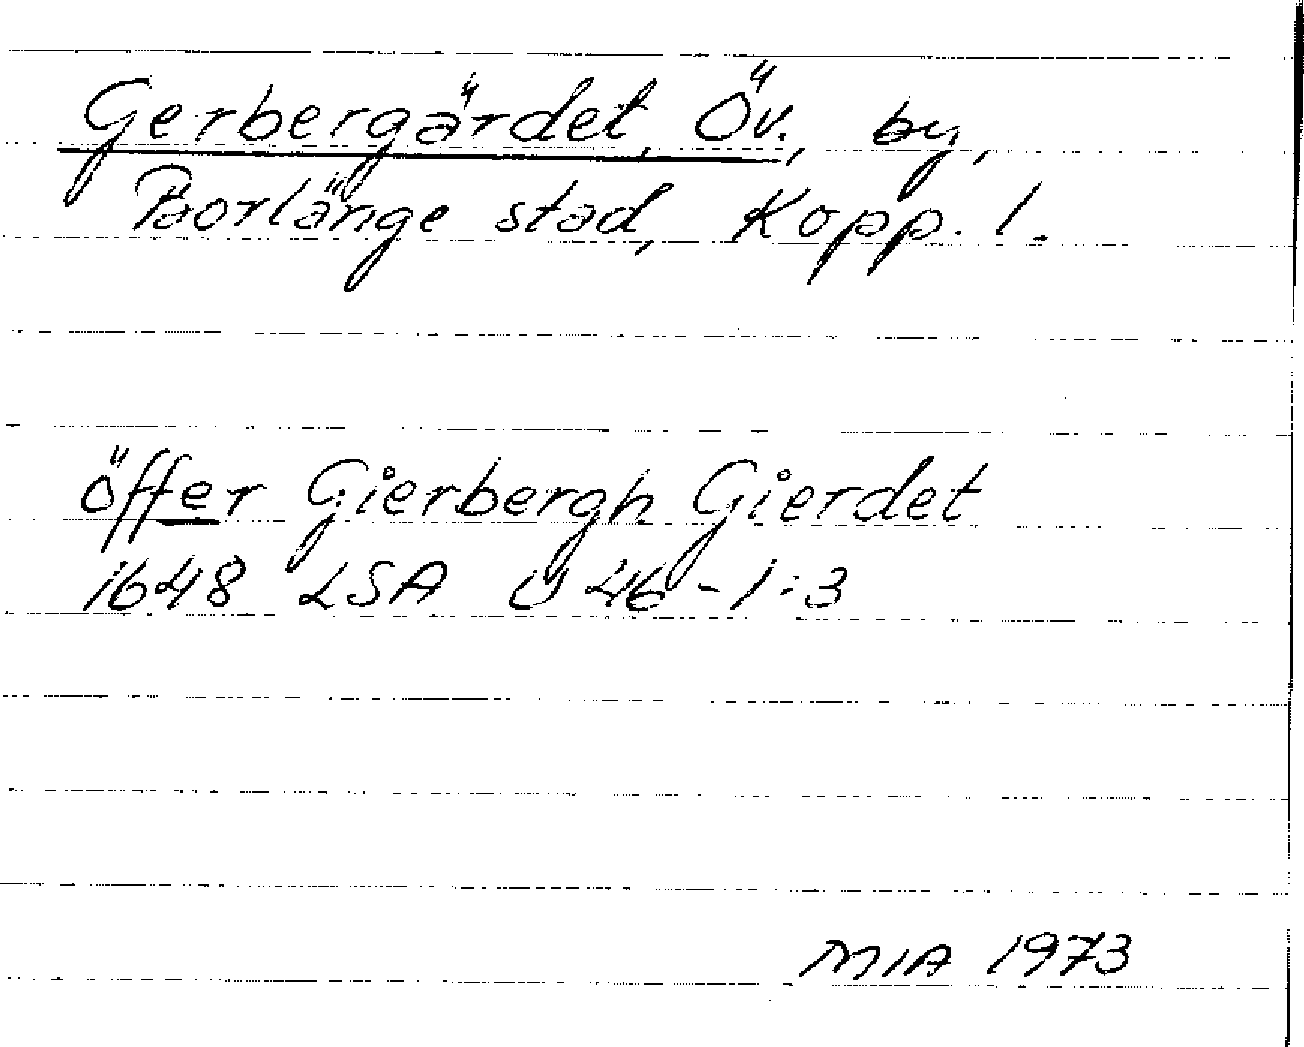 Gerbergärdet, Öv., by,
Borlänge stad, Kopp. l.
öffer Gierbergh Gierdet
1648 LSA U 46-1:3
MIA 1973